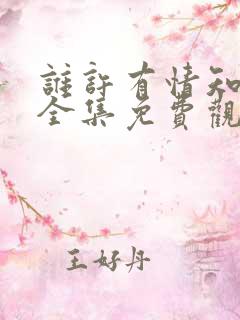 誰許有情知
全集免費觀
王好丹